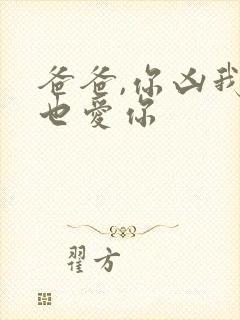 爸爸,你凶我
也爱你
翟方